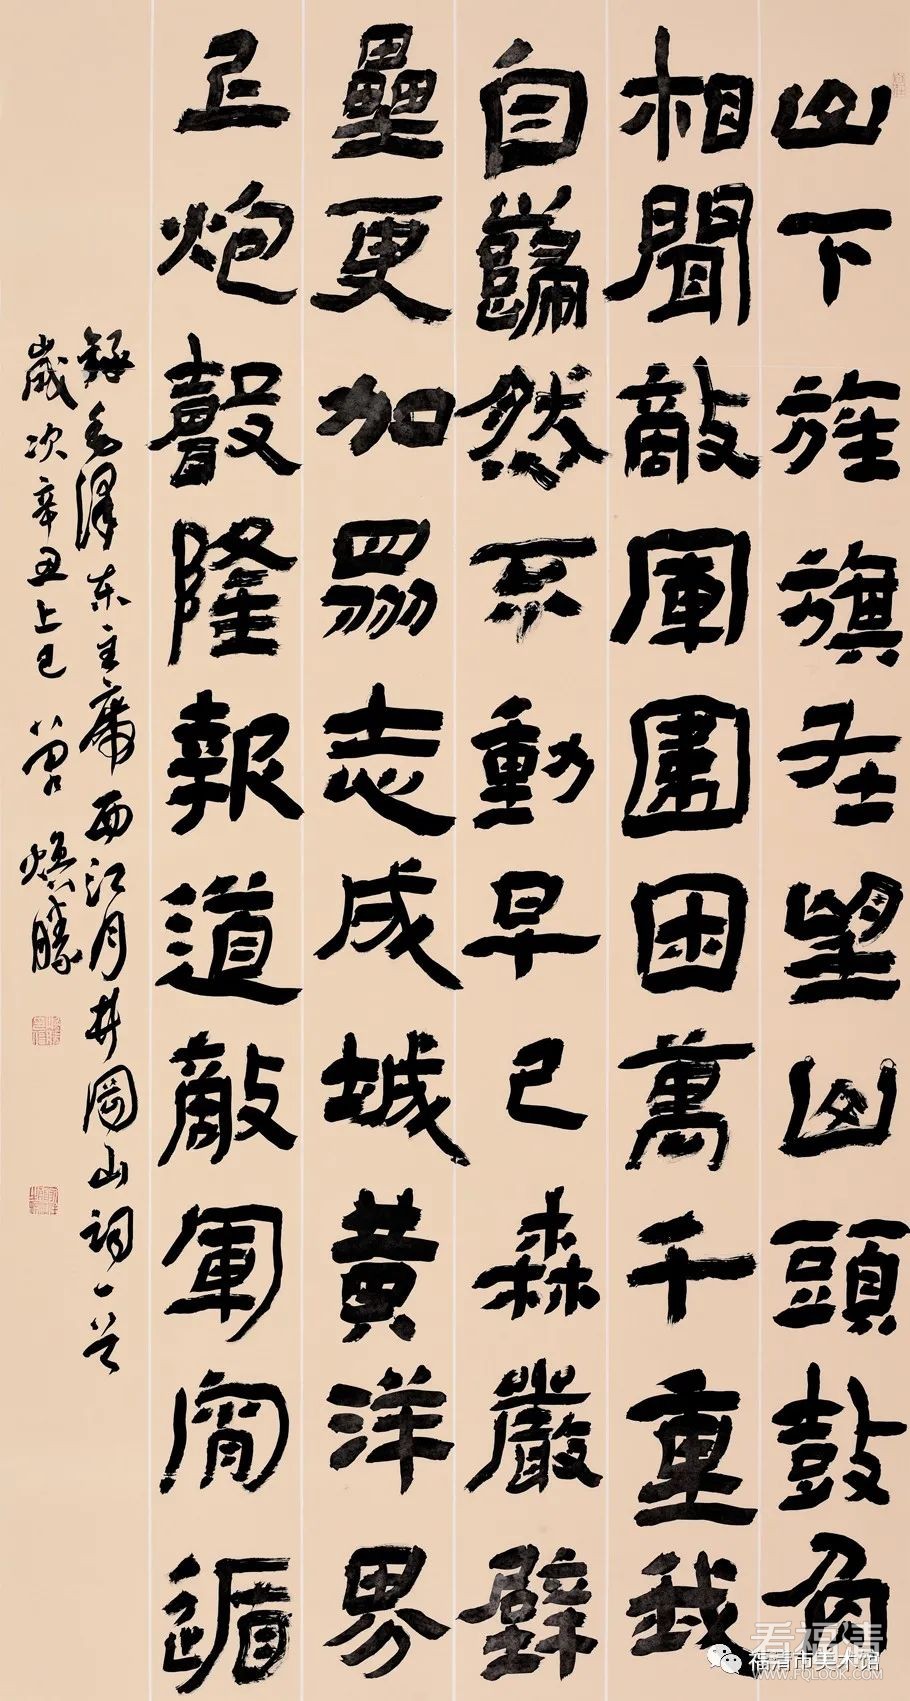 山下旌旗在望山頭鼓角
相聞敵軍圍困萬千重我
自巋然不動早已森嚴壁
壘更加眾志成城黃洋界
上炮聲隆報道敵軍宵遁
錄毛澤东主席西江月井岡山詞一首
歲次辛丑上巳 曾煥勝
看福清
福清市美术馆
WWW.FQLOOK.COM